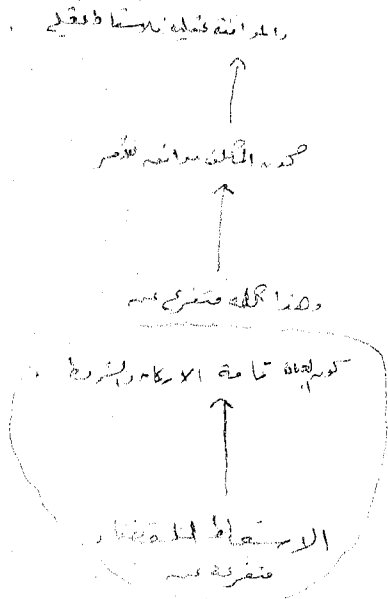 والموافقة عقلية فالاسقاط عقلي .
كون المكلف موافقه للأمر
وهذا كله متفرع عن
كون العبادة تامة الاركان والشروط .
الاسقاط للقضاء
متفرعة عن